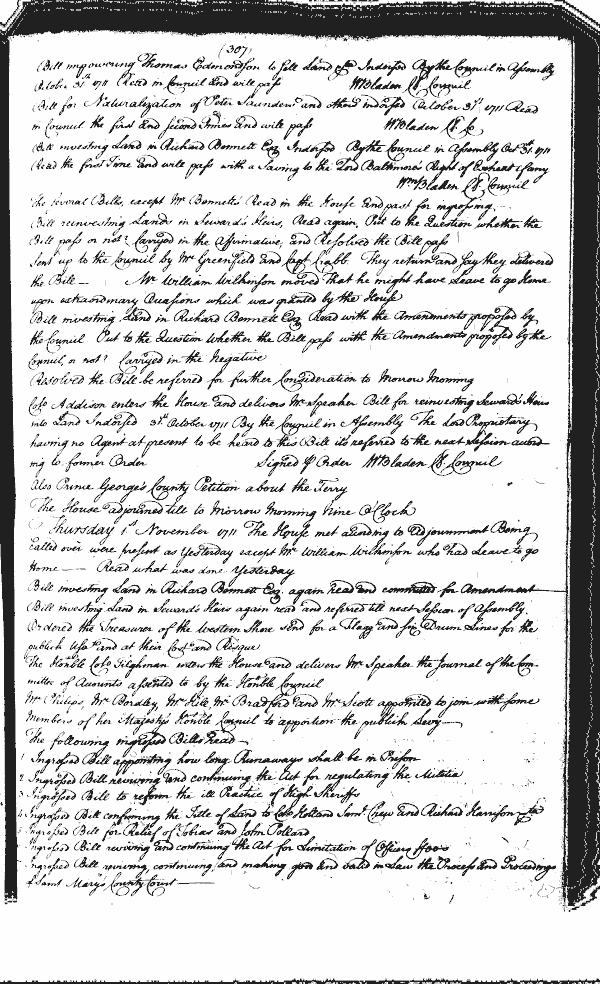 (307)
Bill impowering Thomas Edmondson to sell Land &ca Indorsed By the Council in Assembly
October 31st 1711 Read in Council and will pass WBladen Cl. Council
Bill for Naturalization of Peter and indorsed October 31st 1711 Read
in Council the first and second Times and will pass WBladen Cl. Co
Bill investing Land in Richard Bennett Esq Indorsed By the Council in Assembly Oct 31st 1711
Read the first Time and will pass with a Saving to the Lord Baltimore's Right of Escheat if any
WmBladen Cl. Council
The several Bills, except Mr Bennetts Read in the House and past for ingrossing.
Bill reinvesting Lands in Seward's Heirs, Read again, Put to the Question whether the
Bill pass or not? Carryed in the Affirmative, and Resolved the Bill pass
Sent up to the Council by Mr Greenfield and Capt Crabb They return and say they delivered
the Bill — Mr William Wilkinson moved that he might have Leave to go Home
upon extraordinary Occasions which was granted by the House
Bill investing Land in Richard Bennett Esq Read with the Amendments proposed by
the Council Put to the Question Whether the Bill pass with the Amendments proposed by the
Council, or not? Carryed in the Negative
Resolved the Bill be referred for further Consideration to Morrow Morning
Colo Addison enters the House and delivers Mr Speaker Bill for reinvesting Seward's Heirs
into Land Indorsed 31st October 1711 By the Council in Assembly The Lord Proprietary
having no Agent at present to be heard to this Bill its referred to the next Session accord
ing to former Order Signed p Order WBladen Cl. Council
Also Prince George's County Petition about the Ferry
The House adjourned till to Morrow Morning Nine o'Clock
Thursday 1st November 1711 The House met according to Adjournment Being
called over were present as Yesterday except Mr William Wilkinson who had Leave to go
Home — Read what was done Yesterday
Bill investing Land in Richard Bennett Esq again read and committed for Amendment
Bill investing Land in Seward's Heirs again read and referred till next Session of Assembly.
Ordered the Treasurer of the Western Shore Send for a Flagg and six Drum Lines for the
publick Use and at their Cost and Risque
The Honble Colo Tilghman enters the House and delivers Mr Speaker the Journal of the Com-
mittee of Accounts assented to by the Honble Council
Mr Philips, Mr Bordley, Mr Hill, Mr Bradford and Mr Scott appointed to join with some
Members of her Majestys Honble Council to apportion the publick Levy
The following ingrossed Bills Read
1 Ingrossed Bill appointing how long Runaways shall be in Prison
2 Ingrossed Bill reviving and continuing the Act for regulating the Militia
3 Ingrossed Bill to reform the ill Practice of High Sheriffs
4 Ingrossed Bill confirming the Title of Land to Colo Holland Saml and Richard Harrison &ca
5 Ingrossed Bill for Relief of Tobias and John Pollard
Ingrossed Bill reviving and continuing the Act for Limitation of Officers ffees
Ingrossed Bill reviving, continuing, and making good and valid in Law the Process and Proceedings
of Saint Mary's County Court